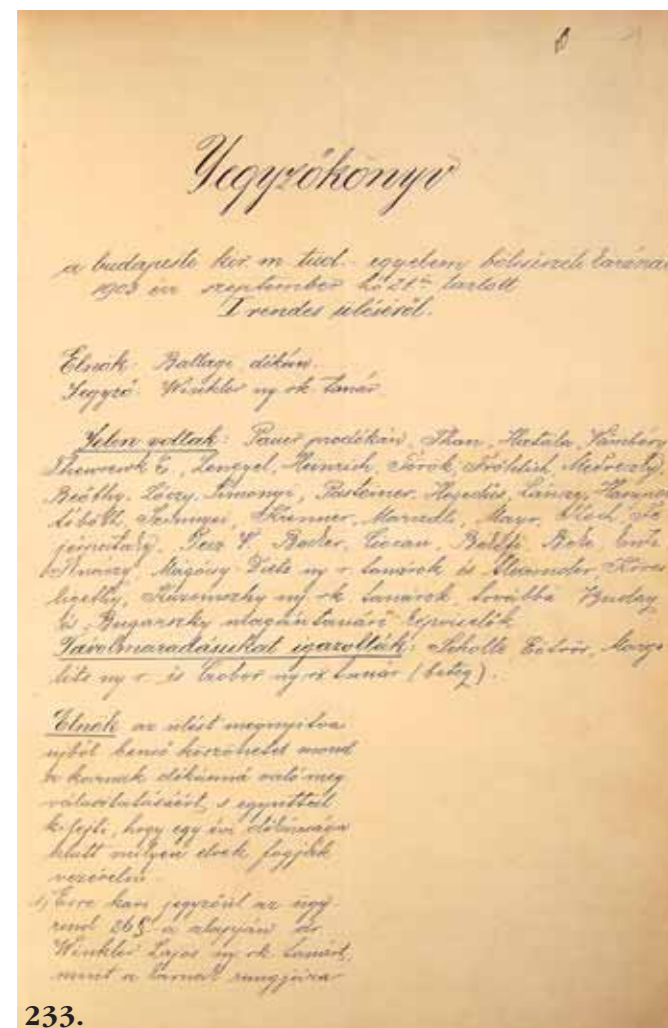 Jegyzőkönyv
a budapesti kir. m. tud. egyetem bölcsészeti karának
1903 évi szeptember hó 21-én tartott
I rendes üléséről.
Elnök: Ballagi dékán.
Jegyző: Winkler ny. rk. tanár.
Jelen voltak: Pauer prodékán, Than, Hatala, Vámbéry,
Thewrewk E., Lengyel, Heinrich, Török, Fröhlich, Medveczky,
Beöthy, Lóczy, Simonyi, Pasteiner, Hegedüs, Lánczy,
Marczali, Mayr,
ny. r. tanárok és Alexander, Köves
ligethy, ny. rk. tanárok, továbbá Buday
és Bugarszky magántanári képviselők.
Távolmaradásukat igazolták: Scholtz, Eötvös, Marga
lits ny. r. és Czobor ny. rk. tanár (beteg).
Elnök az ülést megnyitva
ujból benső köszönetet mond
a karnak dékánná való meg
választatásáért, s egyuttal
kifejti, hogy egy évi dékánsága
alatt milyen elvek fogják
vezérelni.
1) Erre kari jegyzőül az ügy
rend 26 § a alapján dr.
Winkler Lajos ny. rk. tanárt,
mint a tanári rangjára
233.